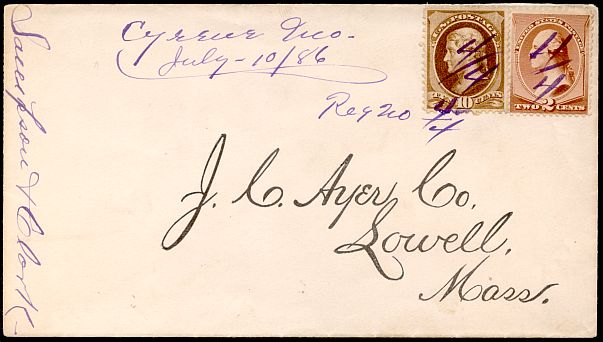 Cyrene Mo.
July-10/86
Reg No 44
U.S. POSTAGE
TEN 10 CENTS
UNITED STATES POSTAGE
TWO 2 CENTS
J. C. Ayer Co.
Lowell,
Mass.
Sampson & Clark